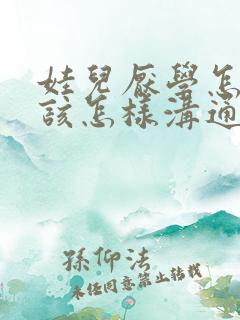 娃兒厭學怎
該怎樣溝通
孫仰法
未经同意禁止转载